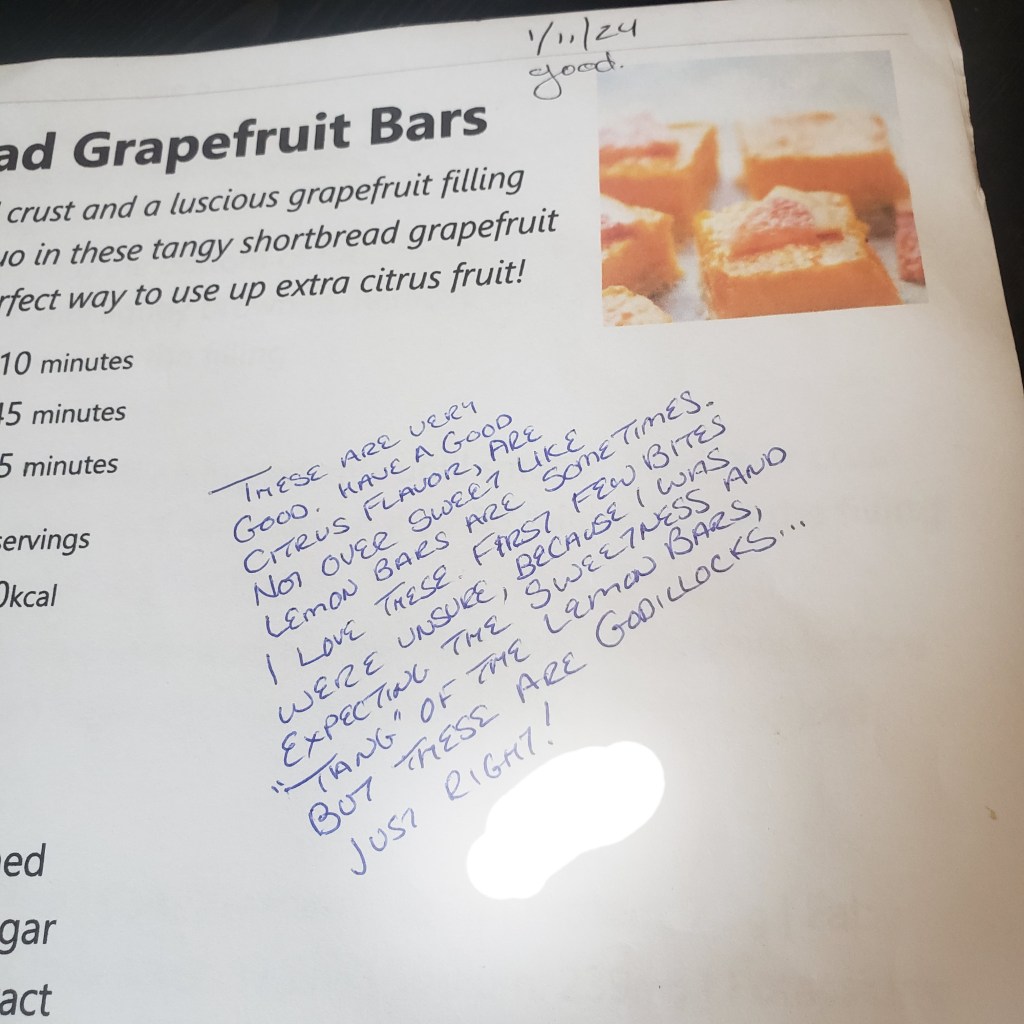 1/11/24
good.
ad Grapefruit Bars
crust and a luscious grapefruit filling
uo in these tangy shortbread grapefruit
rfect way to use up extra citrus fruit!
10 minutes
45 minutes
5 minutes
servings
0kcal
THESE ARE VERY
GOOD. HAVE A GOOD
CITRUS FLAVOR, ARE
NOT OVER SWEET LIKE
LEMON BARS ARE SOMETIMES.
I LOVE THESE. FIRST FEW BITES
WERE UNSURE, BECAUSE I WAS
EXPECTING THE SWEETNESS AND
"TANG" OF THE LEMON BARS,
BUT THESE ARE GODILLOCKS...
JUST RIGHT!
ed
gar
act